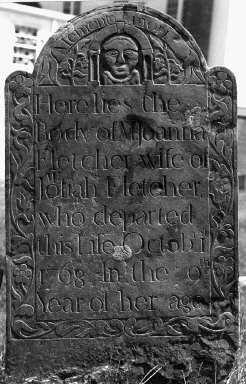 Memento mori
Here lies the
Body of Mrs Joanna
Fletcher, wife of
Josiah Fletcher,
who departed
this Life Octobr
1768. In the 79th
Year of her age